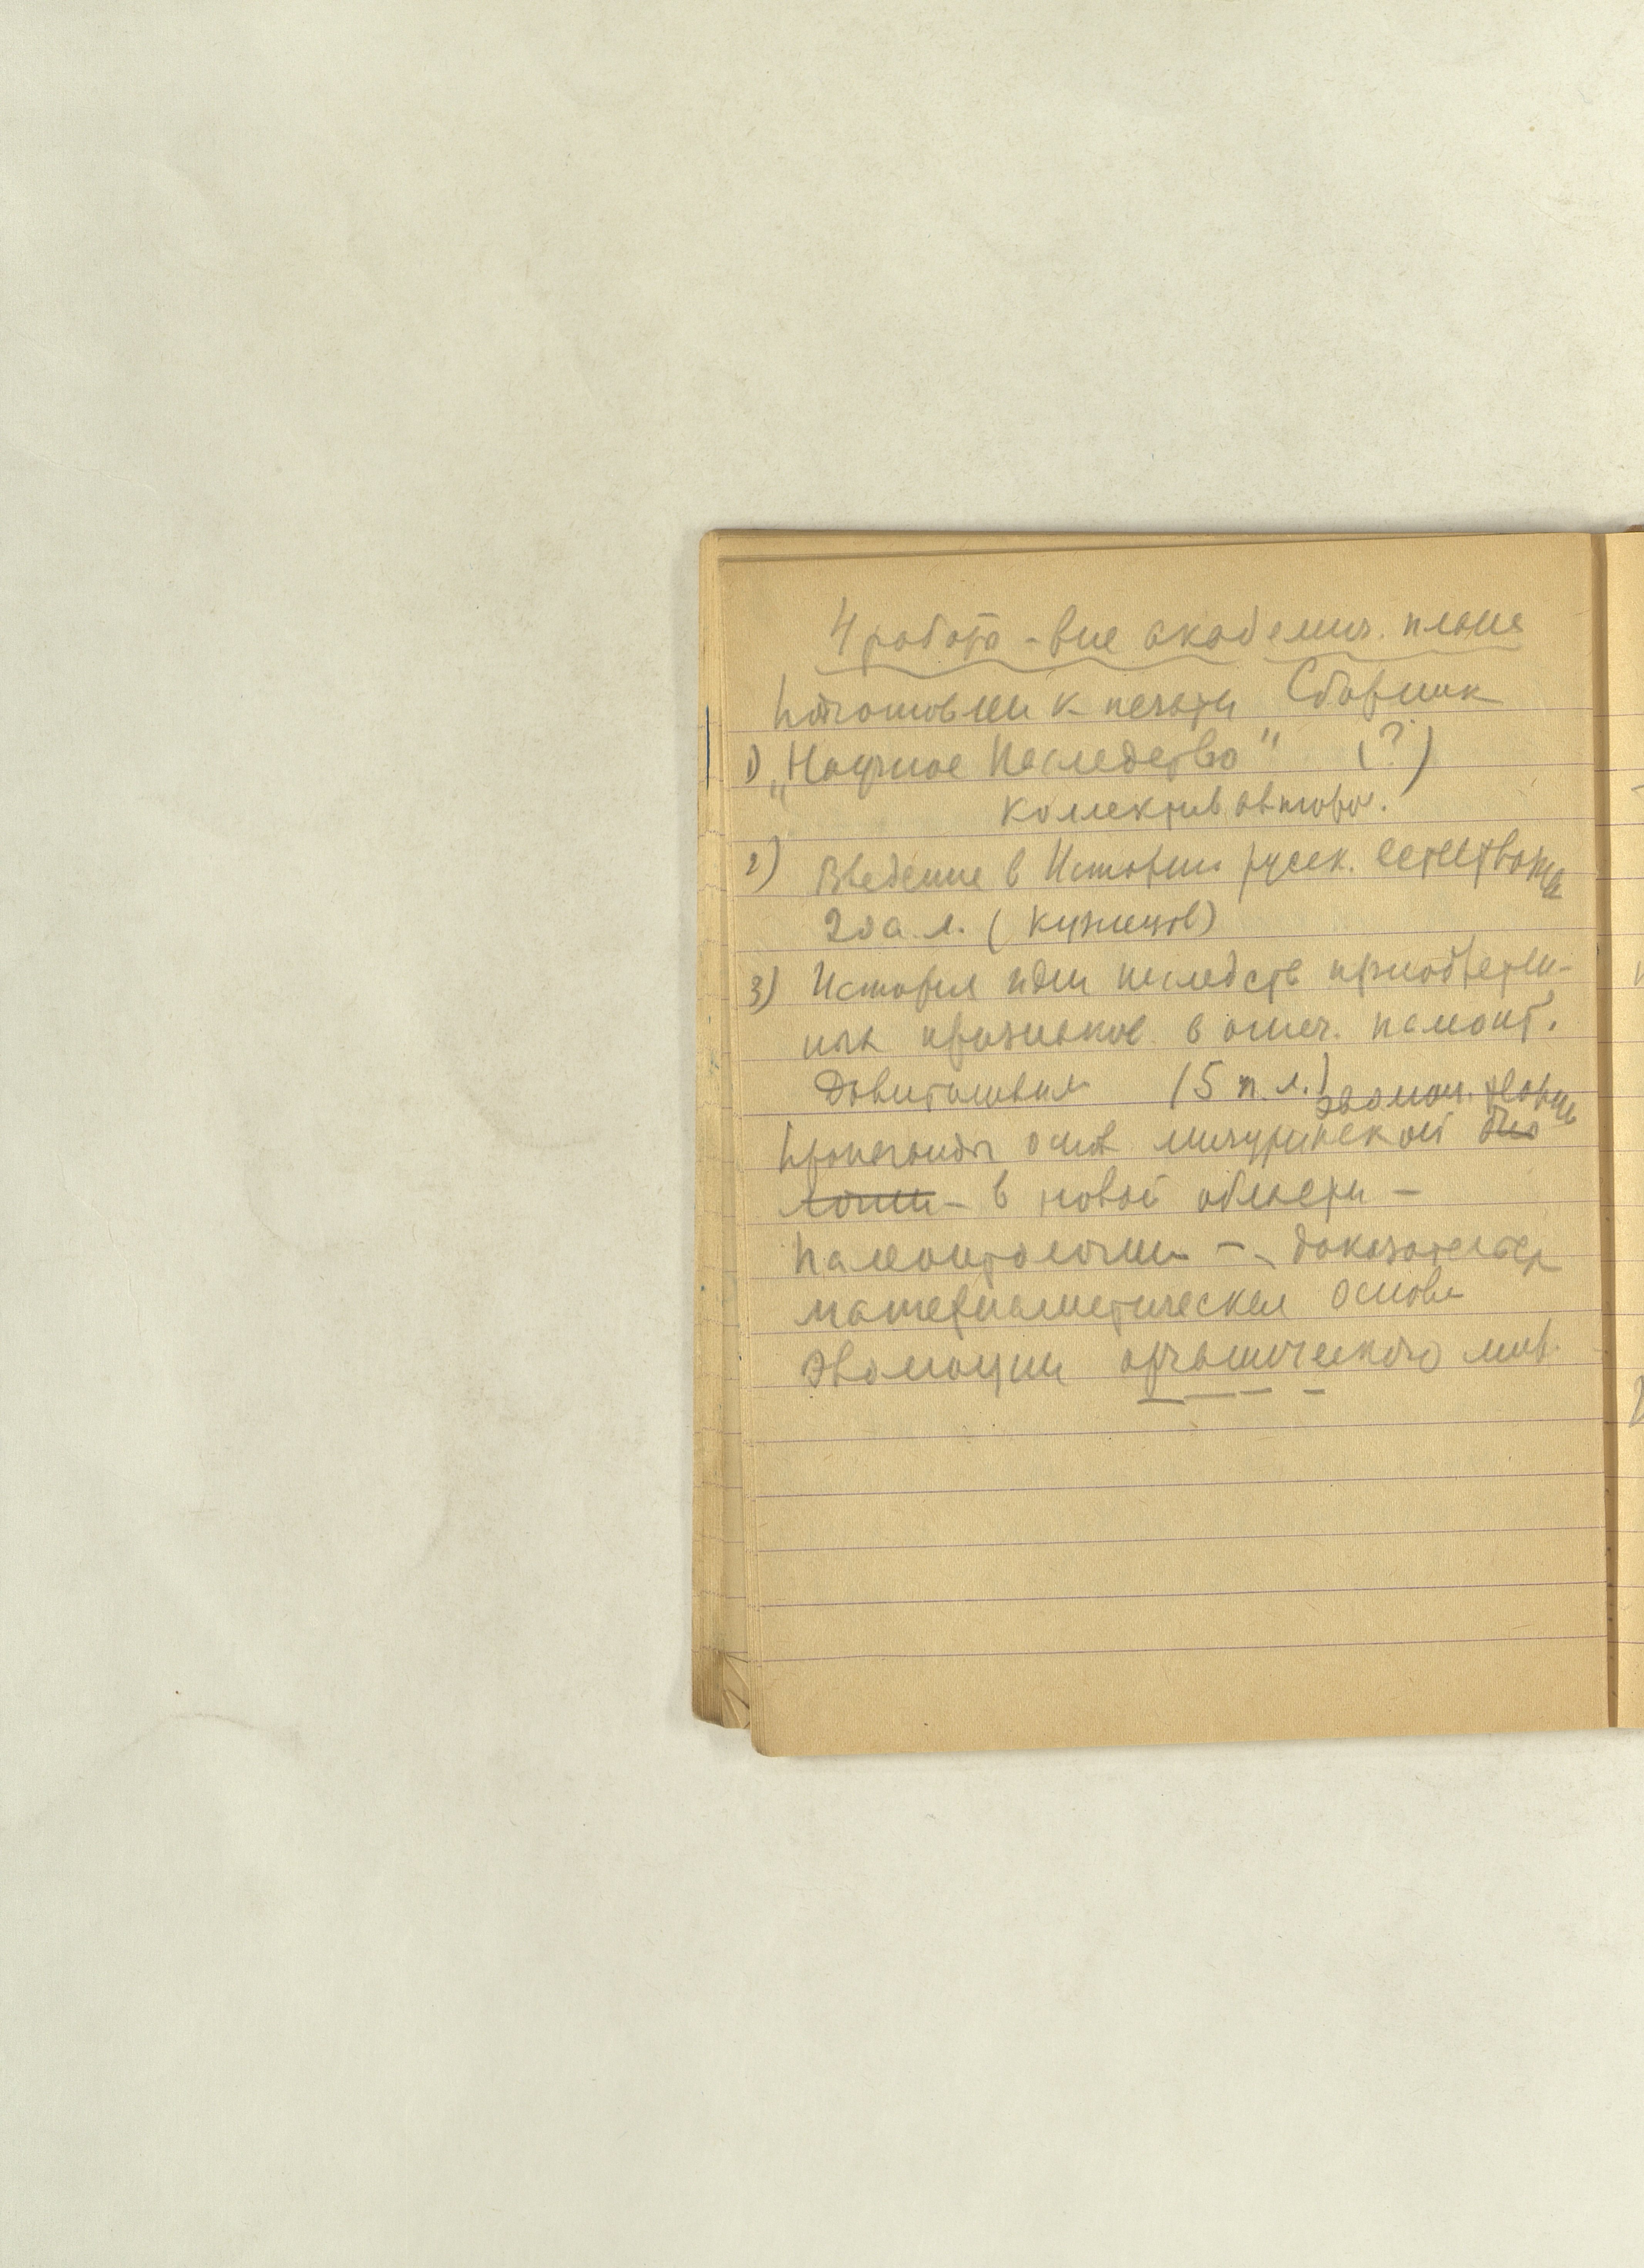 4 работа - вне академич. плана
Подготовлен к печати Сборник
1) „Научное Наследство" (?)
Коллектив авторов.
2) Введение в Историю русск. естествозн
20 а. л. (Кузнецов)
3) История идеи наследств приобретен-
ных признаков в отеч. палеонт.
Давиташвили (5 п. л.)
эволюц. теории
Пропаганда основ мичуринской био
логии - в новой области -
палеонтологии - доказательств
материалистическая основа
эволюции органического мир.